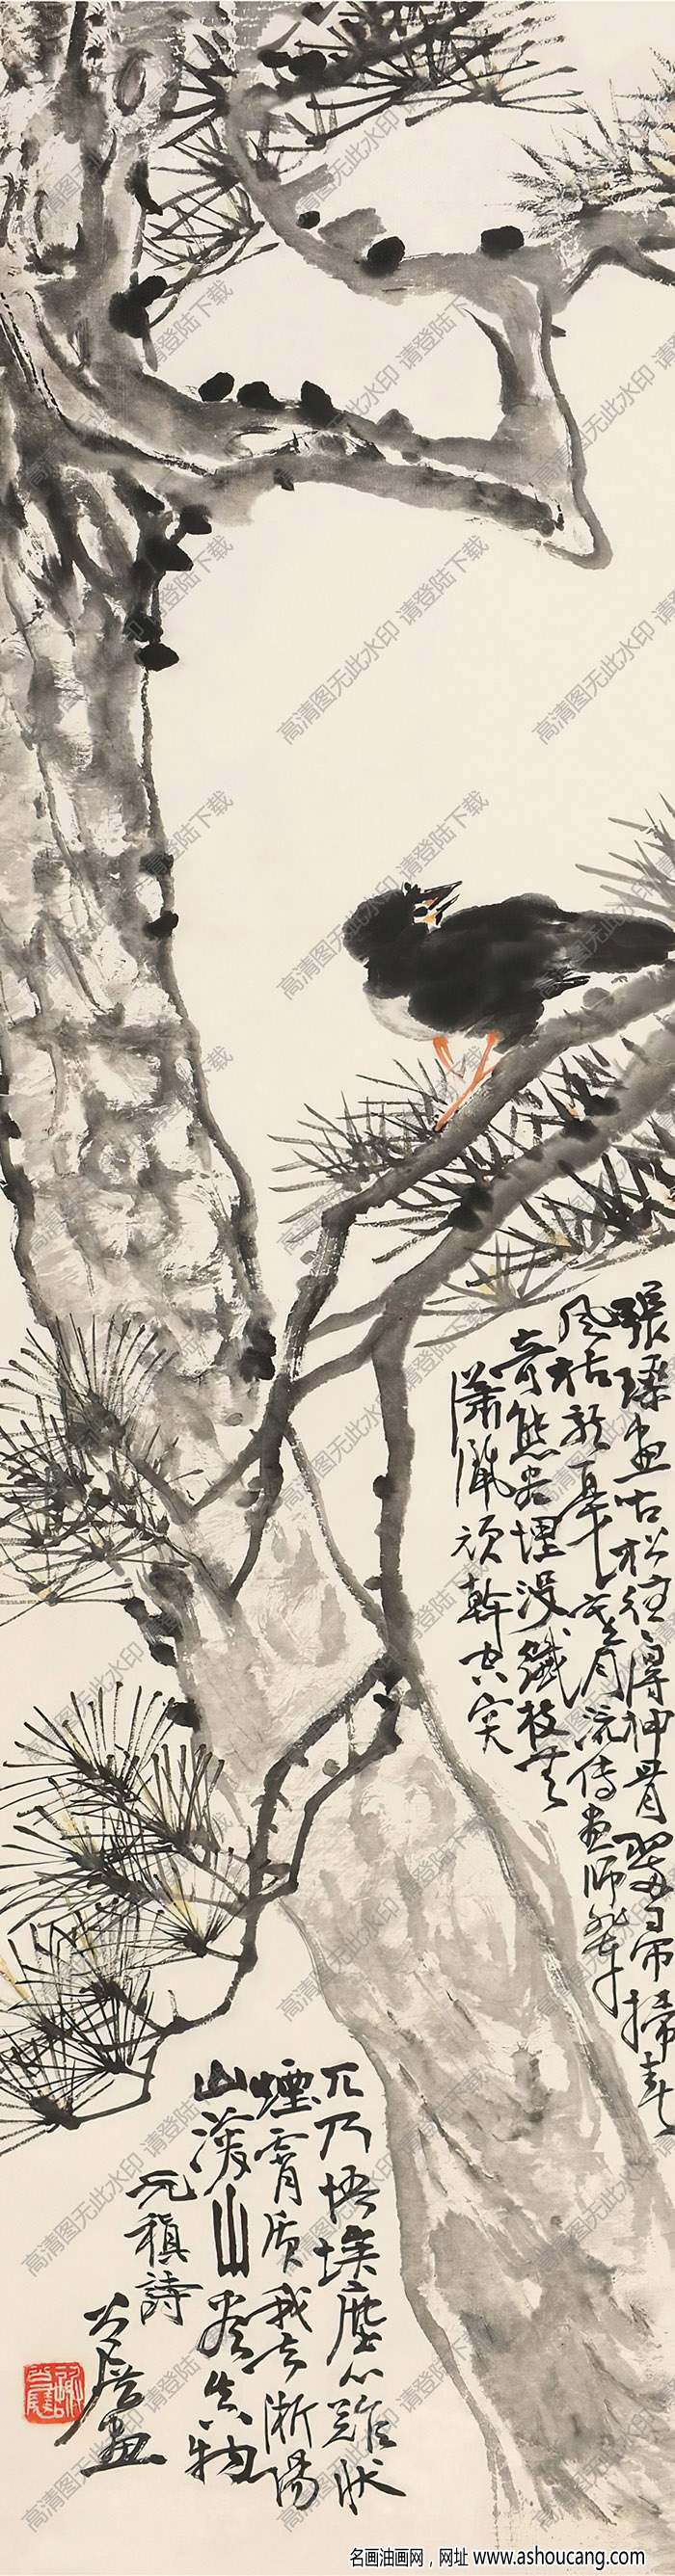 張璪畫古松往往得神骨翠帚掃春
風枯龍戛寒月流傳畫師輩
奇態盡埋沒纖枝無
瀟灑頑幹空突
兀乃悟埃塵心難狀
煙霄質我去淅陽
山深山看真物
元稹詩
畫
高清图无此水印 请登陆下载
名画油画网，网址 www.ashoucang.com